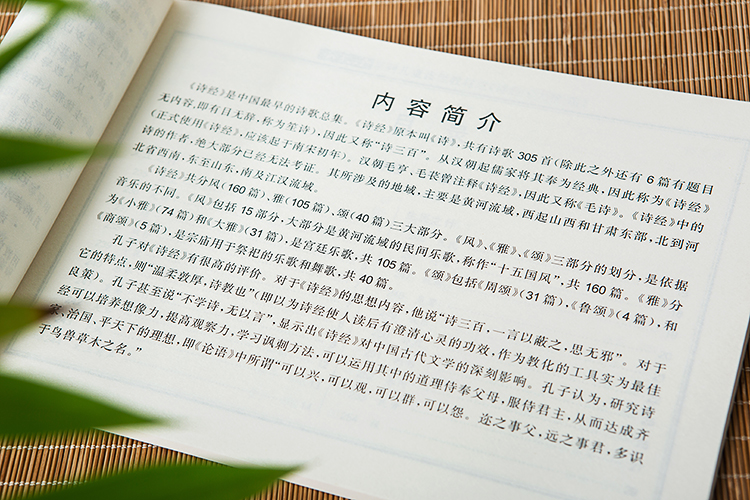 内容简介
《诗经》是中国最早的诗歌总集。《诗经》原本叫《诗》,共有诗歌 305 首(除此之外还有 6 篇有题目
无内容,即有目无辞,称为笙诗),因此又称“诗三百”。从汉朝起儒家将其奉为经典,因此称为《诗经》
(正式使用《诗经》,应该起于南宋初年)。汉朝毛亨、毛苌曾注释《诗经》,因此又称《毛诗》。《诗经》中的
诗的作者,绝大部分已经无法考证。其所涉及的地域,主要是黄河流域,西起山西和甘肃东部,北到河
北省西南,东至山东,南及江汉流域。
《诗经》共分风(160 篇)、雅(105 篇)、颂(40 篇)三大部分。《风》、《雅》、《颂》三部分的划分,是依据
音乐的不同。《风》包括 15 部分,大部分是黄河流域的民间乐歌,称作“十五国风”,共 160 篇。《雅》分
为《小雅》(74 篇)和《大雅》(31 篇),是宫廷乐歌,共 105 篇。《颂》包括《周颂》(31 篇),《鲁颂》(4 篇),和
《商颂》(5 篇),是宗庙用于祭祀的乐歌和舞歌,共 40 篇。
孔子对《诗经》有很高的评价。对于《诗经》的思想内容,他说“诗三百,一言以蔽之,思无邪”。对于
它的特点,则“温柔敦厚,诗教也”(即以为诗经使人读后有澄清心灵的功效,作为教化的工具实为最佳
良策)。孔子甚至说“不学诗,无以言”,显示出《诗经》对中国古代文学的深刻影响。孔子认为,研究诗
经可以培养想像力,提高观察力,学习讽刺方法,可以运用其中的道理侍奉父母,服侍君主,从而达成齐
家、治国、平天下的理想,即《论语》中所谓“可以兴,可以观,可以群,可以怨。迩之事父,远之事君,多识
于鸟兽草木之名。”